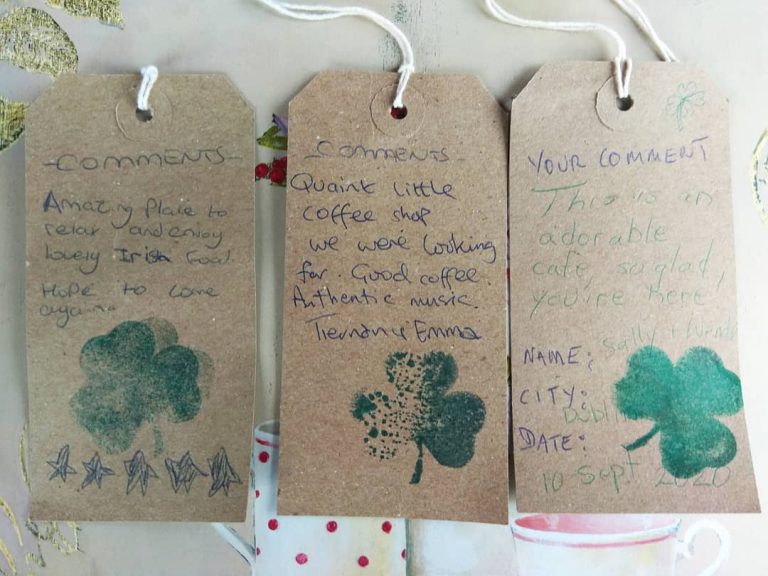 -COMMENTS-
Amazing Place to
relax and enjoy
lovely Irish Food.
Hope to come
again
-COMMENTS-
Quaint little
coffee shop
we were looking
for. Good coffee.
Authentic music.
Tiernan & Emma
YOUR COMMENT
This is an
adorable
cafe, so glad,
you're here
NAME: Sally +
CITY: Dublin
DATE:
10 Sept 2020